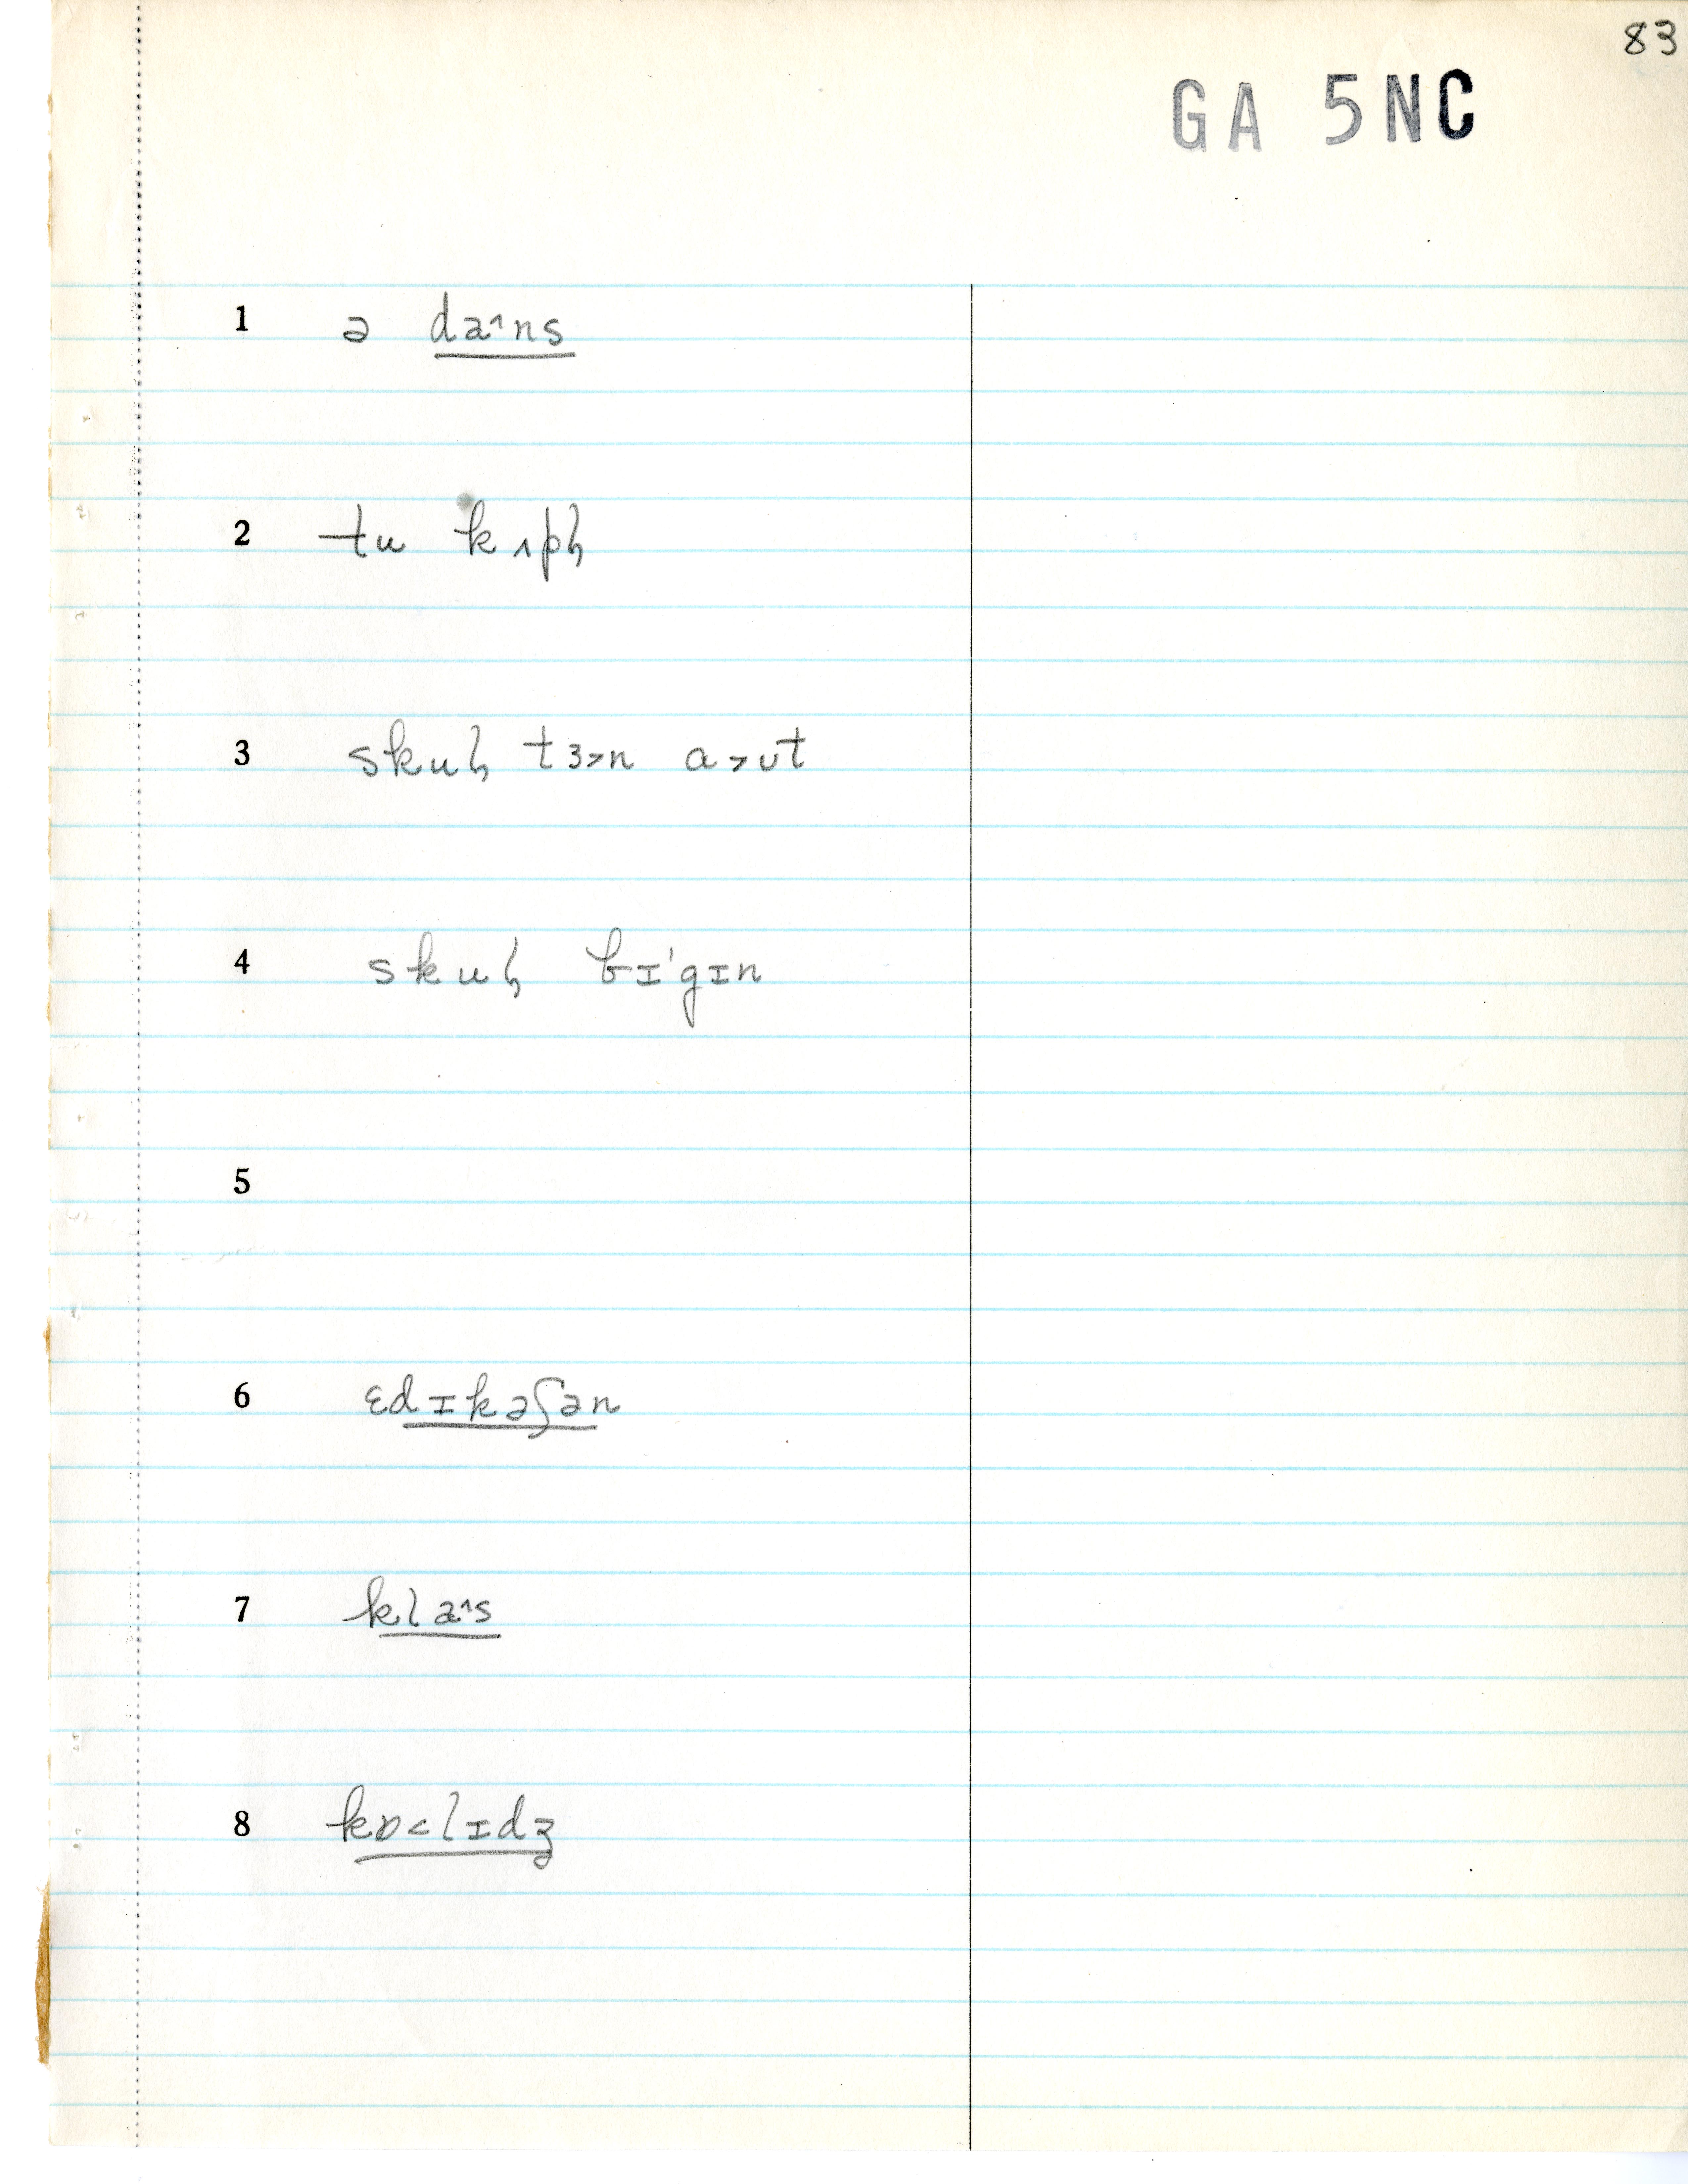 83
GA 5NC
1 ə da˄ns
2 tu kɪph
3 skuɫ tɜ˃n ɑ˃ʊt
4 skuɫ bɪ'gɪn
5
6 ɛdɪkəʃən
7 kla˄s
8 kɒ˂lɪdʒ